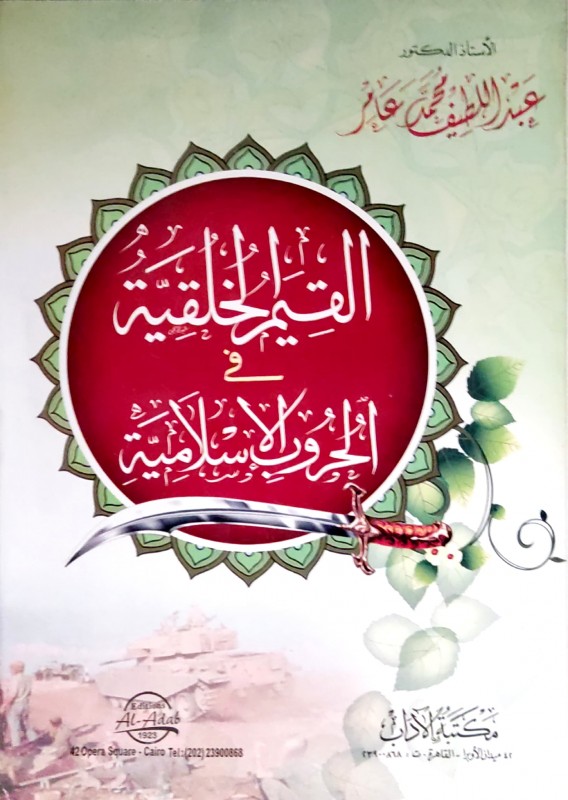 الأستاذ الدكتور
عبد اللطيف محمد عامر
القيم الخلقية
في
الحروب الإسلامية
Editions
Al-Adab
1923
42 Opera Square - Cairo Tel:(202) 23900868
مكتبة الآداب
٤٢ ميدان الأوبرا - القاهرة - ت: ٢٣٩٠٠٨٦٨